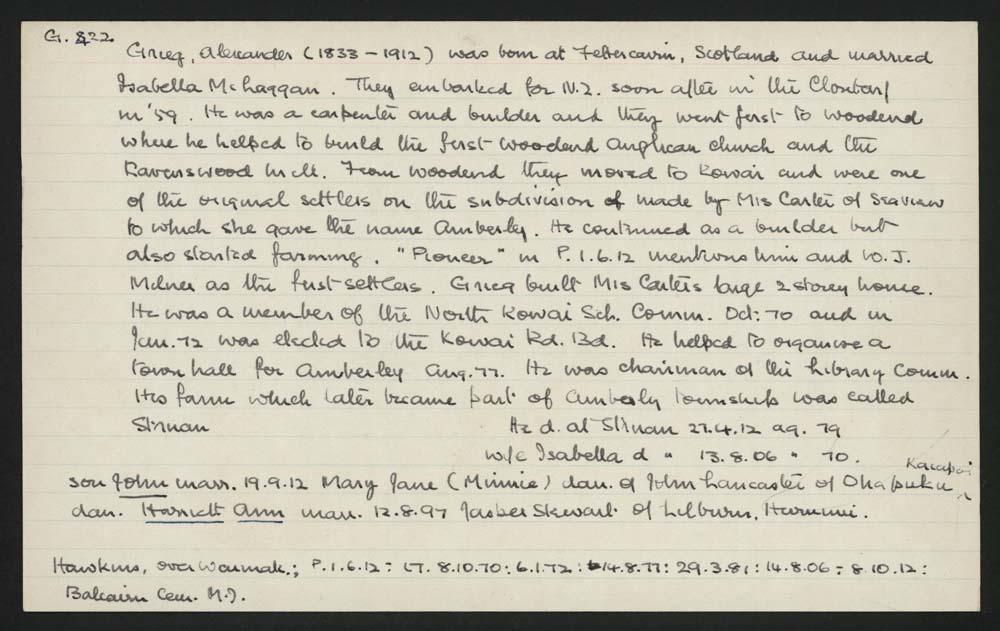 G. 822
Grieg, Alexander (1833-1912) was born at Fettercairn, Scotland and married
Isabella McHaggan. They embarked for N.Z. soon after in the Clontarf
in '59. He was a carpenter and builder and they went first to Woodend
where he helped to build the first Woodend Anglican church and the
Ravenswood mill. From Woodend they moved to Kowai and were one
of the original settlers on the subdivision of made by Mrs Carter of Seaview
to which she gave the name Amberley. He continued as a builder but
also started farming. "Pioneer" in P.1.6.12 mentions him and W.J.
Milner as the first settlers. Grieg built Mrs Carters large 2 storey house.
He was a member of the North Kowai Sch. Comm. Oct: 70 and in
Jan. 72 was elected to the Kowai Rd. Bd. He helped to organise a
town hall for Amberley Aug. 77. He was chairman of the Library Comm.
His farm which later became part of Amberley township was called
Slinan He d. at Slinan 27.4.12 ag. 79
w/e Isabella d " 13.8.06 " 70.
son John marr. 19.9.12 Mary Jane (Minnie) dau. of John Lancaster of Ohapuku Kaiapoi
dau. Harriett Ann marr. 12.8.97 Jasper Stewart of Lilburn, Hurunui.
Hawkins, over Waimak.; P.1.6.12: LT. 8.10.70: 6.1.72: 14.8.77: 29.3.81: 14.8.06: 8.10.12:
Balcairn Cem. M.I.